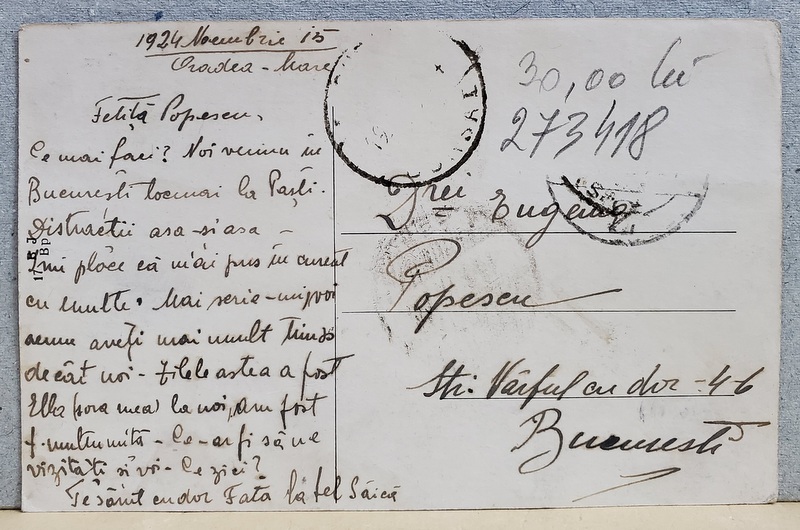 1924 Noembrie 15
Oradea-Mare
Fetiță Popescu,
Ce mai faci? Noi venim în
București tocmai la Paști.
Distracții asa-si-asa -
Imi plăce că m'ai pus în curent
cu multe. Mai scrie-mi, voi
acum aveți mai mult timp
decât noi - Zilele astea a fost
Ella (sora mea) la noi, am fost
f. multumită - Ce-ar fi să ne
vizitati si voi - Ce zici?
Te sărut cu dor Fata la fel
30,00 lei
273418
Drei Eugenia
Popescu
Str. Vârful cu dor - 46
București